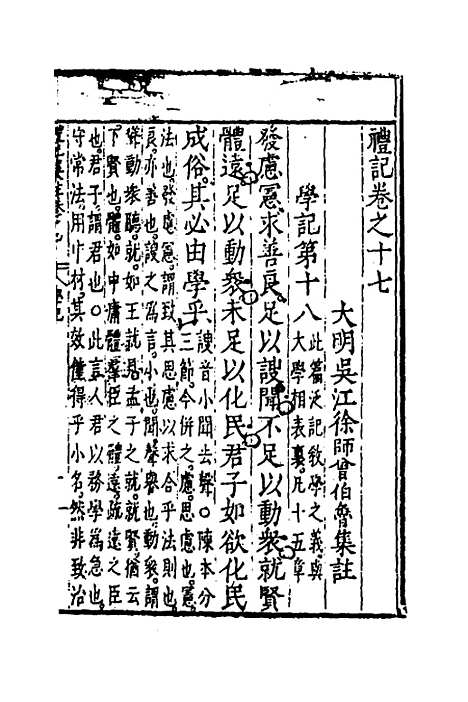 禮記卷之十七
大明吳江徐師曾伯魯集註
學記第十八
此篇泛記教學之義與
大學相表裏凡十五章
發慮憲求善良足以謏聞不足以動衆就賢
體遠足以動衆未足以化民君子如欲化民
成俗其必由學乎
謏音小聞去聲○陳本分
三節今併之慮思慮也憲
法也發慮憲謂致其思慮以求合乎法則也
良亦善也謏之為言小也聞聲譽也動衆謂
聳動衆聽就如王就見孟子之就就賢猶云
下賢也體如中庸體羣臣之體遠疏遠之臣
也君子謂君也○此言人君以務學為急也
守常法用中材其效僅得乎小名然非致治